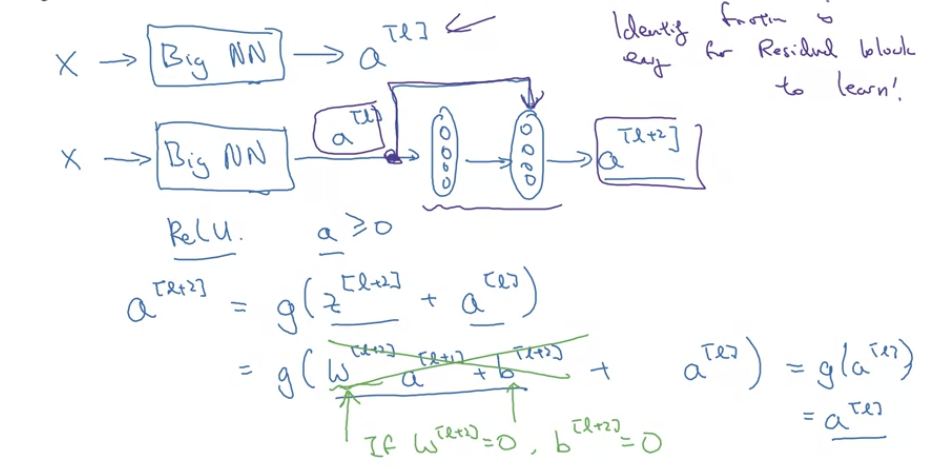 X → Big NN → a^[l]
Identity function is
easy for Residual block
to learn!
X → Big NN → a^[l] → → a^[l+2]
ReLU. a ≥ 0
a^[l+2] = g(z^[l+2] + a^[l])
= g(W^[l+2] a^[l+1] + b^[l+2] + a^[l]) = g(a^[l])
= a^[l]
If W^[l+2] = 0, b^[l+2] = 0